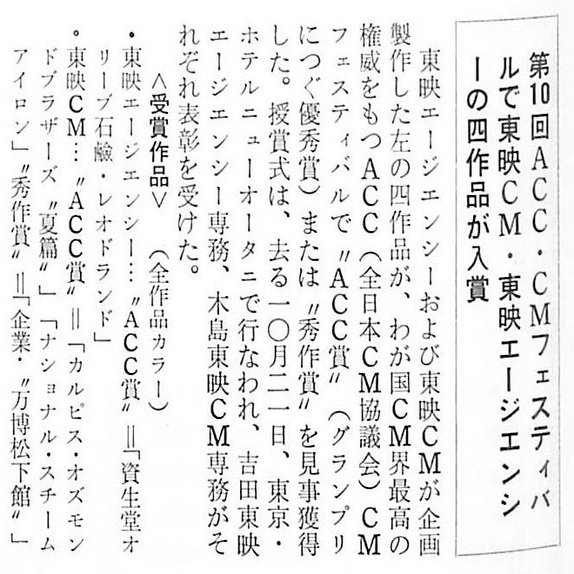 第10回ACC・CMフェスティバ
ルで東映CM・東映エージエンシ
ーの四作品が入賞
東映エージエンシーおよび東映CMが企画
製作した左の四作品が、わが国CM界最高の
権威をもつACC（全日本CM協議会）CM
フェスティバルで〝ACC賞〟（グランプリ
につぐ優秀賞）または〝秀作賞〟を見事獲得
した。授賞式は、去る一〇月二一日、東京・
ホテルニューオータニで行なわれ、吉田東映
エージエンシー専務、木島東映CM専務がそ
れぞれ表彰を受けた。
＜受賞作品＞（全作品カラー）
・東映エージエンシー…〝ACC賞〟＝「資生堂オ
リーブ石鹸・レオドランド」
。東映CM…〝ACC賞〟＝「カルピス・オズモン
ドブラザーズ〝夏篇〟」「ナショナル・スチーム
アイロン」〝秀作賞〟＝「企業・〝万博松下館〟」